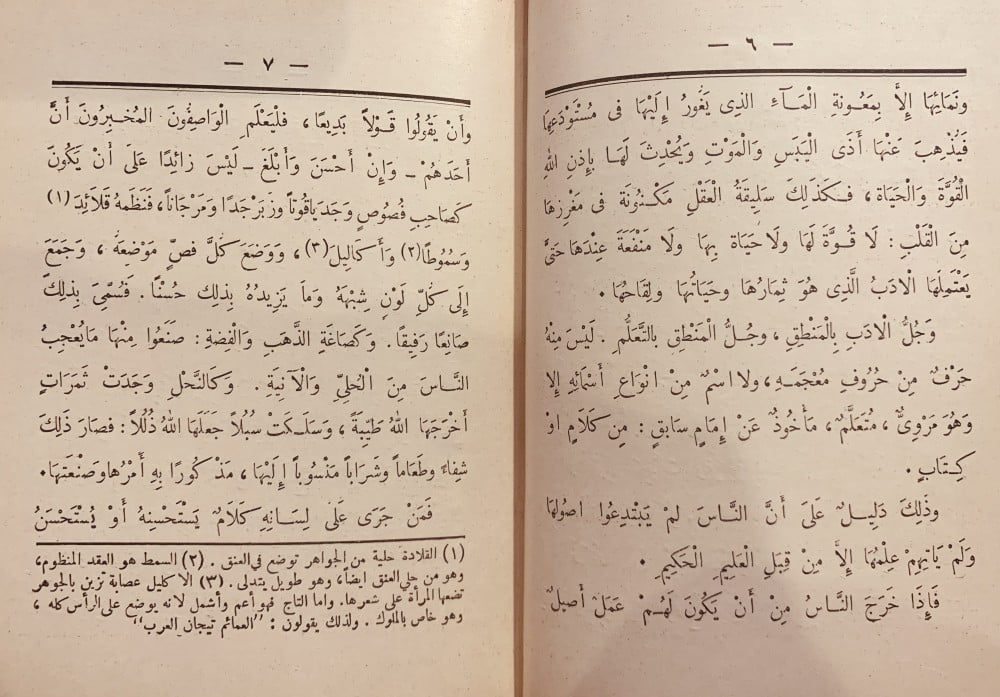 — ٦ —
ونَمَائِهَا إِلاَّ بِمَعُونةِ المَـآءِ الذِى يَغُورُ إِلَيْهَا فى مُسْتَوْدَعِهَا
فَيُذْهِبَ عَنْهَا أَذَى الْيَبْسِ وَالْمَوْتِ وَيُحْدِثَ لَهَا بِإِذنِ اللهِ
الْقُوَّةَ وَالْحَيَاة، فَكَذَلِكَ سَلِيقَةُ العَقْلِ مَكْنُونَة فى مَغْرِزِهَا
مِنَ الْقَلْبِ: لَا قُوَّةَ لَهَا ولَا حَيَاة بِهَا ولَا مَنْفَعَةَ عِنْدَهَا حَتَّى
يَعْتَمِلَهَا الْادَبُ الَّذِى هُوَ ثِمَارُهَا وحَيَاتُهَا ولِقَاحُهَا.
وَجُلُّ الْادَبِ بِالْمَنْطِقِ، وجُلُّ الْمَنْطِقِ بِالتَّعَلُّمِ. لَيْسَ مِنْهُ
حَرْفٌ مِنْ حُرُوفِ مُعْجَمِهِ، ولا اسْمٌ مِنْ انْوَاعِ أَسْمَائِهِ إلا
وَهُوَ مَرْوِىٌّ، مُتَعَلَّمٌ، مَأْخُوذٌ عَنْ إِمَامٍ سَابِقٍ: مِن كَلَامٍ اوْ
كِتَابٍ.
وذَلِكَ دَلِيلٌ عَلَى أَنَّ النَّاسَ لَمْ يَبْتَدِعُوا اصُولَهَا
وَلَمْ يَاتِهِمْ عِلْمُهَا إِلاَّ مِنْ قِبَلِ الْعَلِيمِ الْحَكِيمِ.
فَإِذَا خَرَجَ النَّاسُ مِنْ أَنْ يَكُونَ لَهُمْ عَمَلٌ أَصِيلٌ
— ٧ —
وأَنْ يَقُولُوا قَوْلاً بَدِيعًا، فليَعْلَمِ الوَاصِفُونَ المُخْبِرُونَ أَنَّ
أَحَدَهُمْ - وَإِنْ أَحْسَنَ وَأَبْلَغَ - لَيْسَ زائِدًا عَلَى أَنْ يَكُونَ
كَصَاحِبِ فُصُوصٍ وَجَدَ يَاقُوتاً وزَبَرْجَدًا وَمَرْجَاناً، فَنَظَمَهُ قَلَائِدَ (١)
وَسُمُوطًا (٢) وأَكَالِيلَ (٣)، وَوَضَعَ كُلَّ فصٍّ مَوْضِعَهُ، وَجَمَعَ
إِلَى كُلِّ لَوْنٍ شِبْهَهُ وَمَا يَزِيدُهُ بِذلِك حُسْنًا. فَسُمِّىَ بِذلِكَ
صَانِعًا رَفِيقًا. وَكَصَاغَةِ الذَّهَبِ وَالْفِضَةِ: صَنَعُوا مِنْهَا مَا يُعْجِبُ
النَّـاسَ مِنَ الْحُلِيِّ وَالْآنِيَةِ. وَكَالنَّحْلِ وَجَدَتْ ثَمَرَاتٍ
أَخْرَجَهَا اللهُ طَيِّبَةً، وَسَلَكَتْ سُبُلاً جَعَلَهَا اللهُ ذُلُلاً: فَصارَ ذَلِكَ
شِفَاءً وطَعَاماً وشَرَاباً مَنْسُوباً إِلَيْهَا، مَذْكُورًا بِهِ أَمْرُهَا وَصَنْعَتُهَا.
فَمَنْ جَرَى عَلَى لِسَانِهِ كَلَامٌ يَسْتَحْسِنهُ أَوْ يُسْتَحْسَنُ
(١) القلادة حلية من الجواهر توضع فى العنق. (٢) السمط هو العقد المنظوم،
وهو من حلى العنق ايضاً، وهو طويل يتدلى. (٣) الاكليل عصابة تزين بالجوهر
تضعها المرأة على شعرها. واما التاج فهو أعم وأشمل لانه يوضع على الرأس كله،
وهو خاص بالملوك. ولذلك يقولون: "العمائم تيجان العرب"